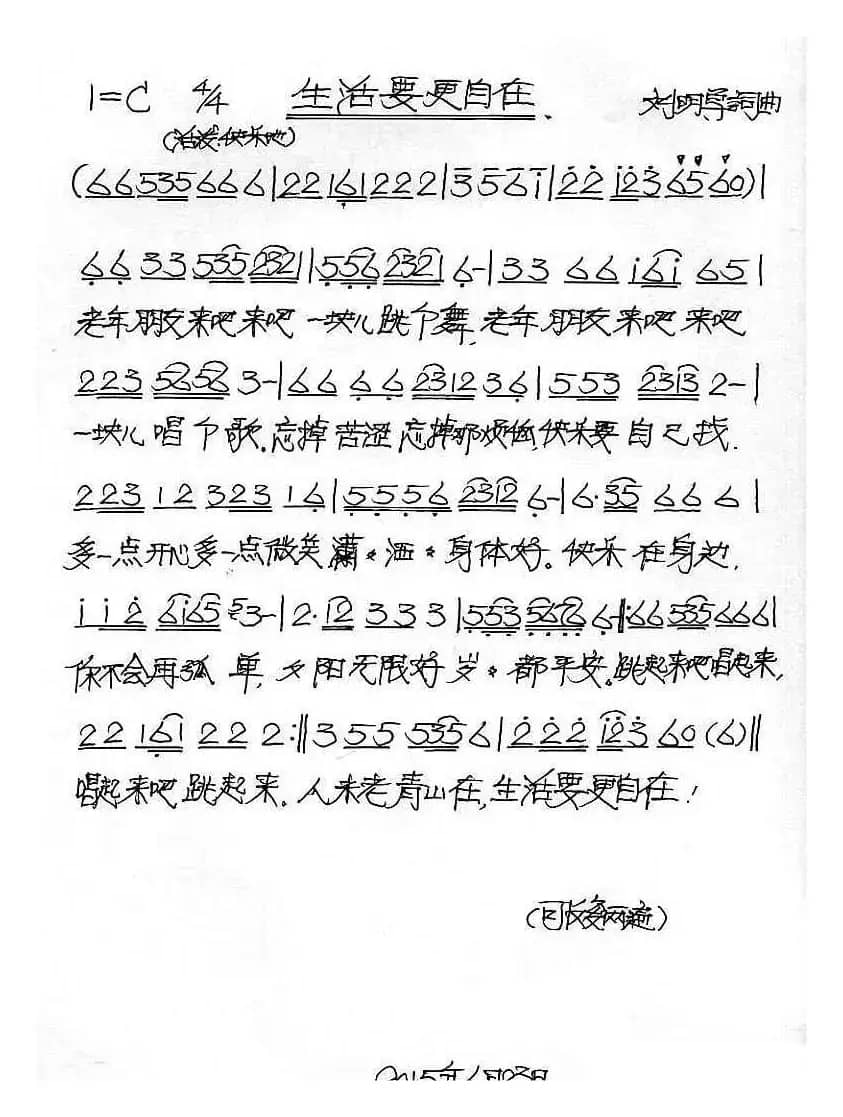 1=C 4/4 生活要更自在. 刘明导詞曲
(活泼.快乐地)
(66535666|2216 1222|3561|22 123 6560)|
66 33 535 2321||556 2321 6-|33 66 161 65|
老年朋友来吧来吧 一块儿跳个舞,老年朋友来吧 来吧
223 5656 3-|66 66 2312 36|553 2313 2-|
一块儿唱个歌.忘掉苦涩 忘掉那烦恼,快乐要自己找.
223 12 323 16|5556 2312 6-|6·35 66 6|
多一点开心多一点微笑 潇*洒*身体好。快乐在身边,
112 6165 53-|2·12 333|553 5676 6-‖:66535666|
你不会再孤单,夕阳无限好 岁*都平安。跳起来吧唱起来,
22 161 22 2:‖355 535 6|222 123 60(6)‖
唱起来吧 跳起来。人未老青山在,生活要更自在!
(可反复两遍)